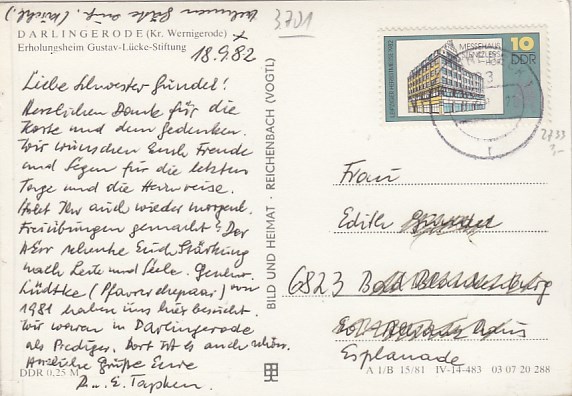 3701
DARLINGERODE (Kr. Wernigerode)
Erholungsheim Gustav-Lücke-Stiftung
18.9.82
Liebe Schwester Gundel!
Herzlichen Dank für die
Karte und dem Gedenken.
Wir wünschen Euch Freude
und Segen für die letzten
Tage und die Heimreise.
Holet Ihr auch wieder morgens
Freiübungen gemacht? Der
Herr schenke Euch Stärkung
nach Leib und Seele. Geschw.
Lüdtke (Pfarrerehepaar) von
1981 haben uns hier besucht.
Wir waren in Darlingerode
als Prediger. Dort ist es auch schön.
Herzliche Grüße Eure
E. Tapken.
DDR 0,25 M
BILD UND HEIMAT · REICHENBACH (VOGTL)
MESSEHAUS
10
DDR
Frau
Edith
6823 Bad
Esplanade
A 1/B 15/81 IV-14-483 03 07 20 288